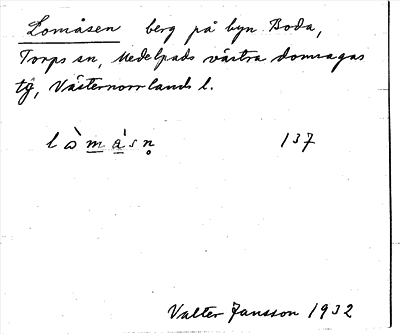 Lomåsen berg på byn Boda,
Torps sn, Medelpads västra domsagas
tg, Västernorrlands l.
137
Valter Jansson 1932